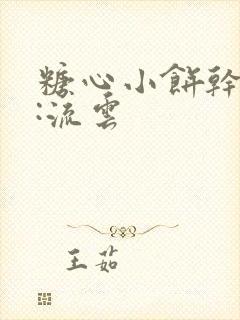 糖心小餅幹
:流雲
王茹